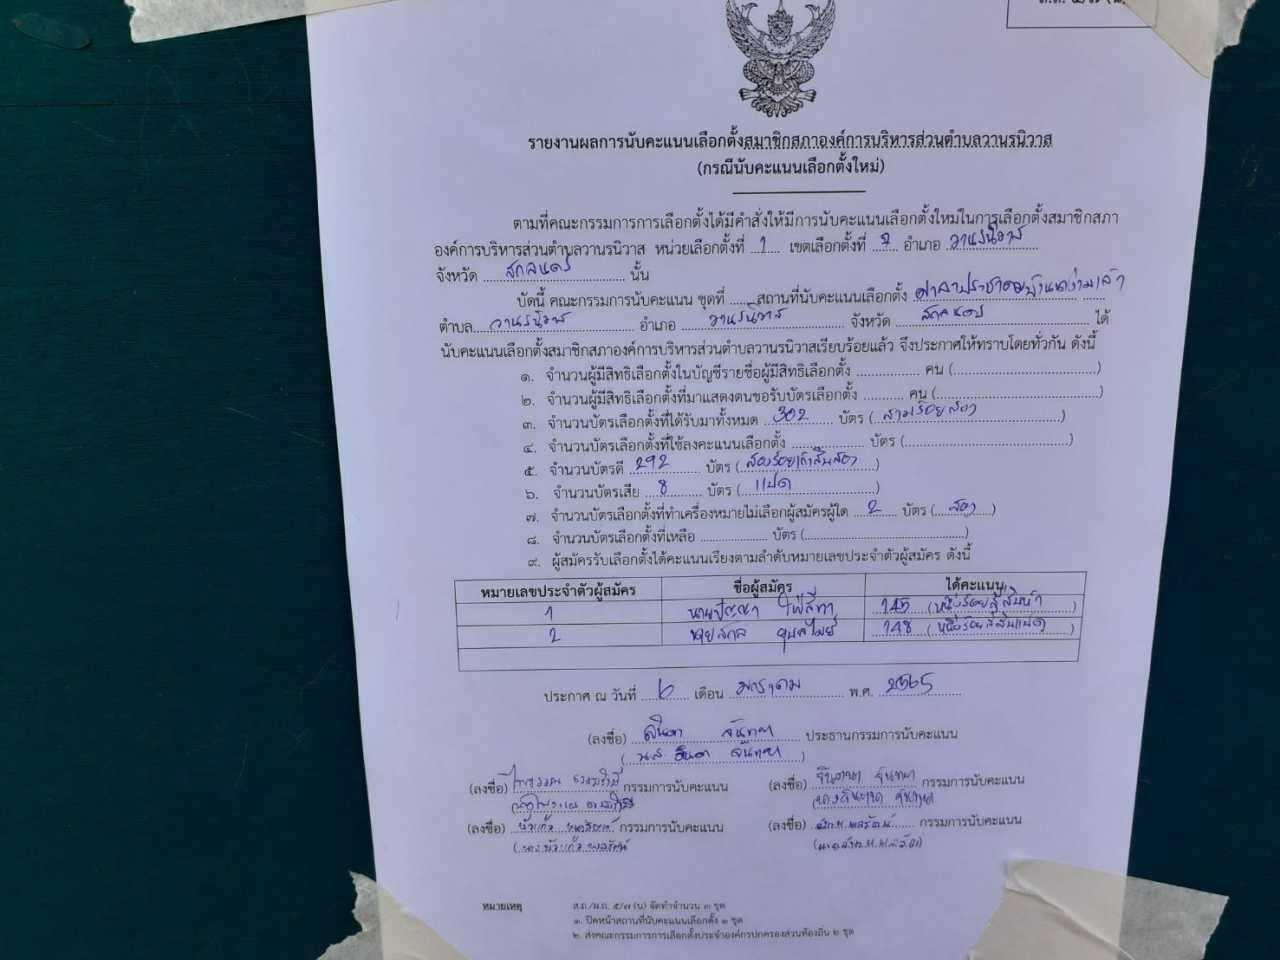 รายงานผลการนับคะแนนเลือกตั้งสมาชิกสภาองค์การบริหารส่วนตำบลวานรนิวาส
(กรณีนับคะแนนเลือกตั้งใหม่)
ตามที่คณะกรรมการการเลือกตั้งได้มีคำสั่งให้มีการนับคะแนนเลือกตั้งใหม่ในการเลือกตั้งสมาชิกสภา
องค์การบริหารส่วนตำบลวานรนิวาส หน่วยเลือกตั้งที่ 1 เขตเลือกตั้งที่ 7 อำเภอ วานรนิวาส
จังหวัด สกลนคร นั้น
บัดนี้ คณะกรรมการนับคะแนน ชุดที่ ...... สถานที่นับคะแนนเลือกตั้ง
ตำบล วานรนิวาส อำเภอ วานรนิวาส จังหวัด สกลนคร ได้
นับคะแนนเลือกตั้งสมาชิกสภาองค์การบริหารส่วนตำบลวานรนิวาสเรียบร้อยแล้ว จึงประกาศให้ทราบโดยทั่วกัน ดังนี้
๑. จำนวนผู้มีสิทธิเลือกตั้งในบัญชีรายชื่อผู้มีสิทธิเลือกตั้ง ................ คน (................)
๒. จำนวนผู้มีสิทธิเลือกตั้งที่มาแสดงตนขอรับบัตรเลือกตั้ง .......... คน (................)
๓. จำนวนบัตรเลือกตั้งที่ได้รับมาทั้งหมด 302 บัตร (สามร้อยสอง)
๔. จำนวนบัตรเลือกตั้งที่ใช้ลงคะแนนเลือกตั้ง ................ บัตร (................)
๕. จำนวนบัตรดี 292 บัตร (สองร้อยเก้าสิบสอง)
๖. จำนวนบัตรเสีย 8 บัตร (แปด)
๗. จำนวนบัตรเลือกตั้งที่ทำเครื่องหมายไม่เลือกผู้สมัครผู้ใด 2 บัตร (สอง)
๘. จำนวนบัตรเลือกตั้งที่เหลือ ................ บัตร (................)
๙. ผู้สมัครรับเลือกตั้งได้คะแนนเรียงตามลำดับหมายเลขประจำตัวผู้สมัคร ดังนี้
หมายเลขประจำตัวผู้สมัคร ชื่อผู้สมัคร ได้คะแนน
1 145 (หนึ่งร้อยสี่สิบห้า)
2 นายสกล 148 (หนึ่งร้อยสี่สิบแปด)
ประกาศ ณ วันที่ 6 เดือน มกราคม พ.ศ. 2565
(ลงชื่อ) ประธานกรรมการนับคะแนน
(ลงชื่อ) กรรมการนับคะแนน (ลงชื่อ) กรรมการนับคะแนน
(ลงชื่อ) กรรมการนับคะแนน (ลงชื่อ) กรรมการนับคะแนน
หมายเหตุ ส.ถ./ผ.ถ. ๕/๗ (น) จัดทำจำนวน ๓ ชุด
๑. ปิดหน้าสถานที่นับคะแนนเลือกตั้ง ๑ ชุด
๒. ส่งคณะกรรมการการเลือกตั้งประจำองค์กรปกครองส่วนท้องถิ่น ๒ ชุด